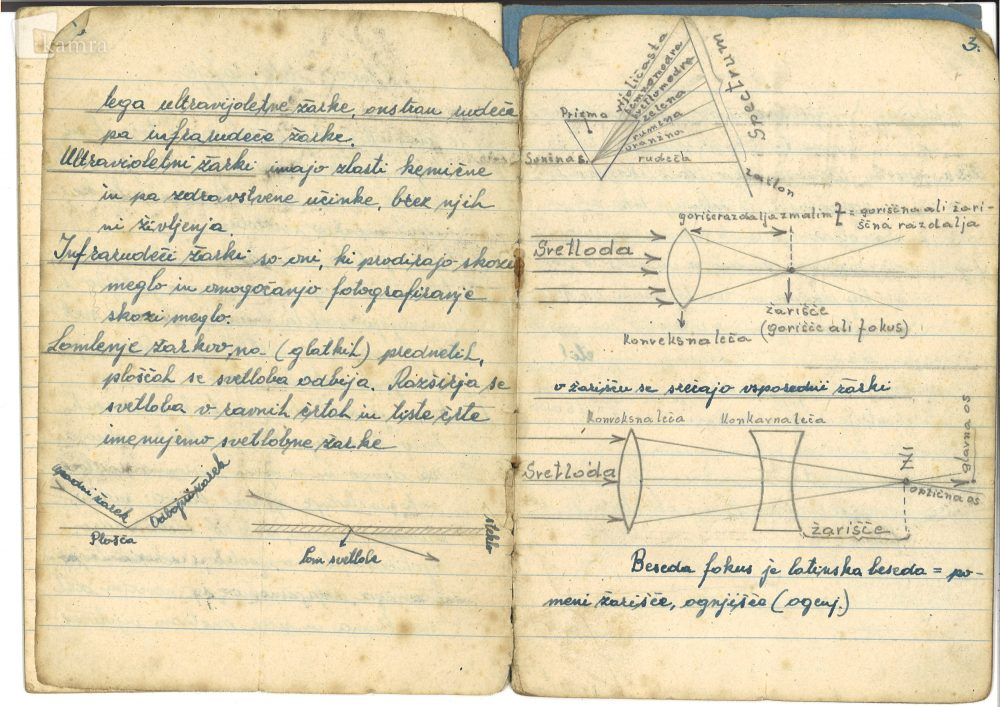 kamra
tega ultravijoletne žarke, onstran rudeče
pa infrarudeče žarke.
Ultravioletni žarki imajo zlasti kemične
in pa zdravstvene učinke, brez njih
ni življenja.
Infrarudeči žarki so oni, ki prodirajo skozi
meglo in omogočanjo fotografiranje
skozi meglo.
Lomlenje žarkov, na (glatkih) prednetih,
ploščah se svetloba odbija. Razširja se
svetloba v ravnih črtah in tiste črte
imenujemo svetlobne žarke
upadni žarek
Odbojni žarek
Plošča
Lom svetlobe
steklo
3.
Prizma
vijoličasta
temnomodra
svetlomodra
zelena
rumena
oranžna
rudeča
Spectrum
zaslon
goriščrazdalja z malim f = goriščna ali žari-
ščna razdalja
Svetloda
žarišče
(gorišče ali fokus)
Konveksna leča
v žarišču se srečajo vsporedni žarki
Konveksna leča
Konkavna leča
Svetloda
glavna os
optična os
žarišče
Beseda fokus je latinska beseda = po-
meni žarišče, ognjišče (ogenj.)